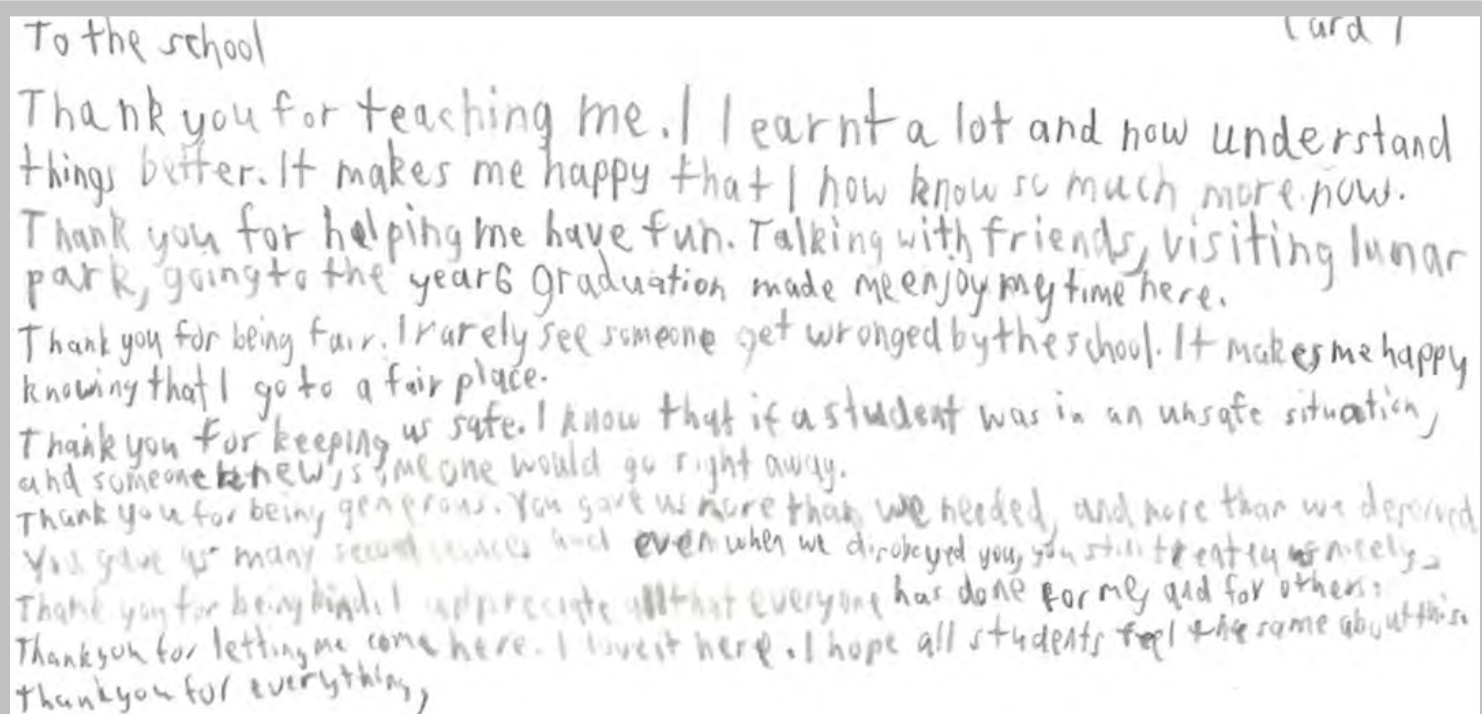 To the school
Card 1
Thank you for teaching me. I learnt a lot and now understand
things better. It makes me happy that I how know so much more now.
Thank you for helping me have fun. Talking with friends, visiting lunar
park, going to the year 6 graduation made me enjoy my time here.
Thank you for being fair. I rarely see someone get wronged by the school. It makes me happy
knowing that I go to a fair place.
Thank you for keeping us safe. I know that if a student was in an unsafe situation,
and someone knew, someone would go right away.
Thank you for being generous. You gave us more than we needed, and more than we deserved
You gave us many second chances and even when we disobeyed you, you still treated us nicely.
Thank you for being kind. I appreciate all that everyone has done for me, and for others.
Thank you for letting me come here. I love it here. I hope all students feel the same about this.
Thank you for everything,